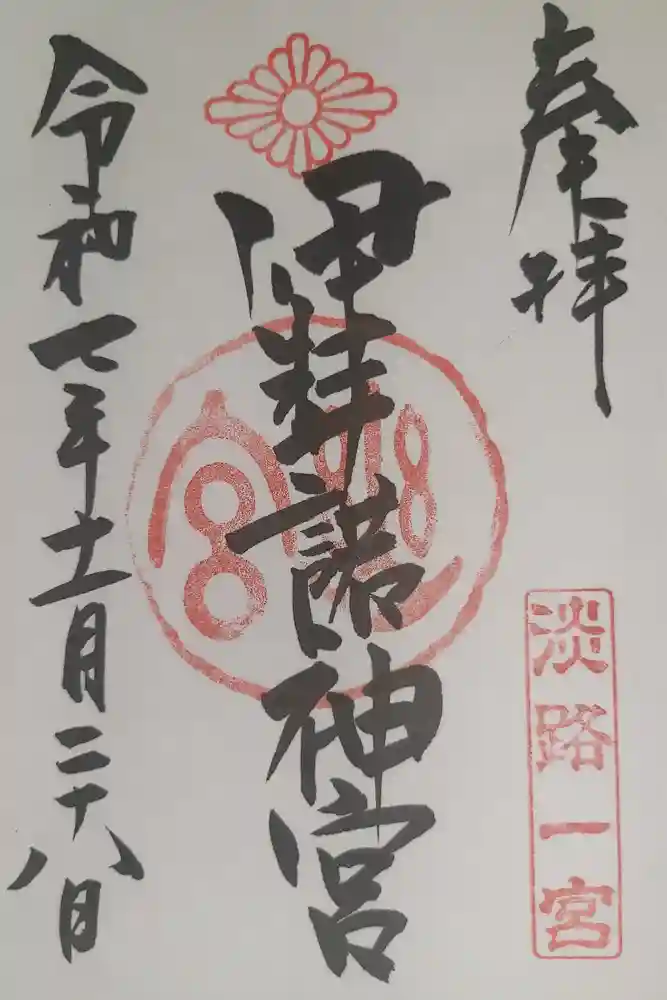 奉拝
淡路一宮
伊弉諾神宮
令和七年十一月二十八日